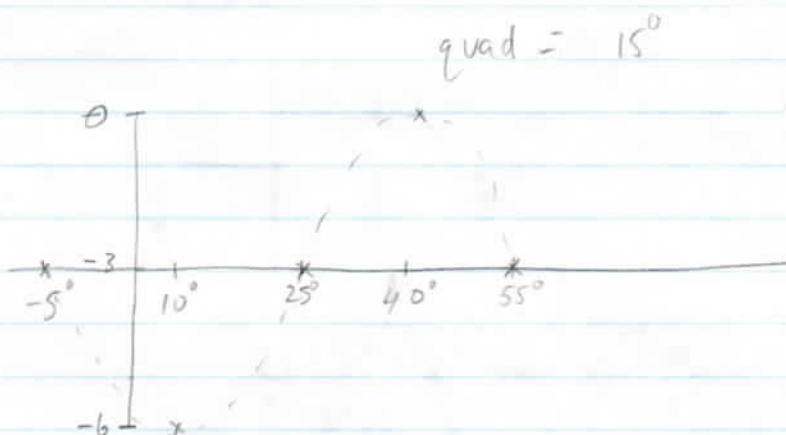 quad = 15°
0
-3
-5° 10° 25° 40° 55°
-6